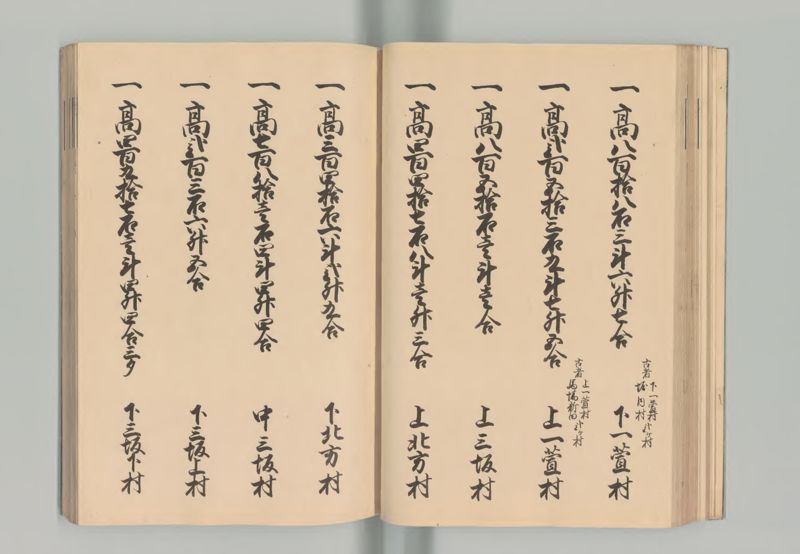 一高八百拾八石三斗六升七合
古者 下一萱村
堀ノ内村
下一萱村
一高弐百五拾三石九斗七升五合
古者 上一萱村
馬場新田
上一萱村
一高八百五拾石壱斗壱合
上三坂村
一高四百四拾七石八斗壱升三合
上北方村
一高三百四拾石六斗弐升九合
下北方村
一高七百八拾壱石四斗四升四合
中三坂村
一高弐百三石六升五合
下三坂上村
一高四百九拾七石壱斗四升四合三夕
下三坂下村